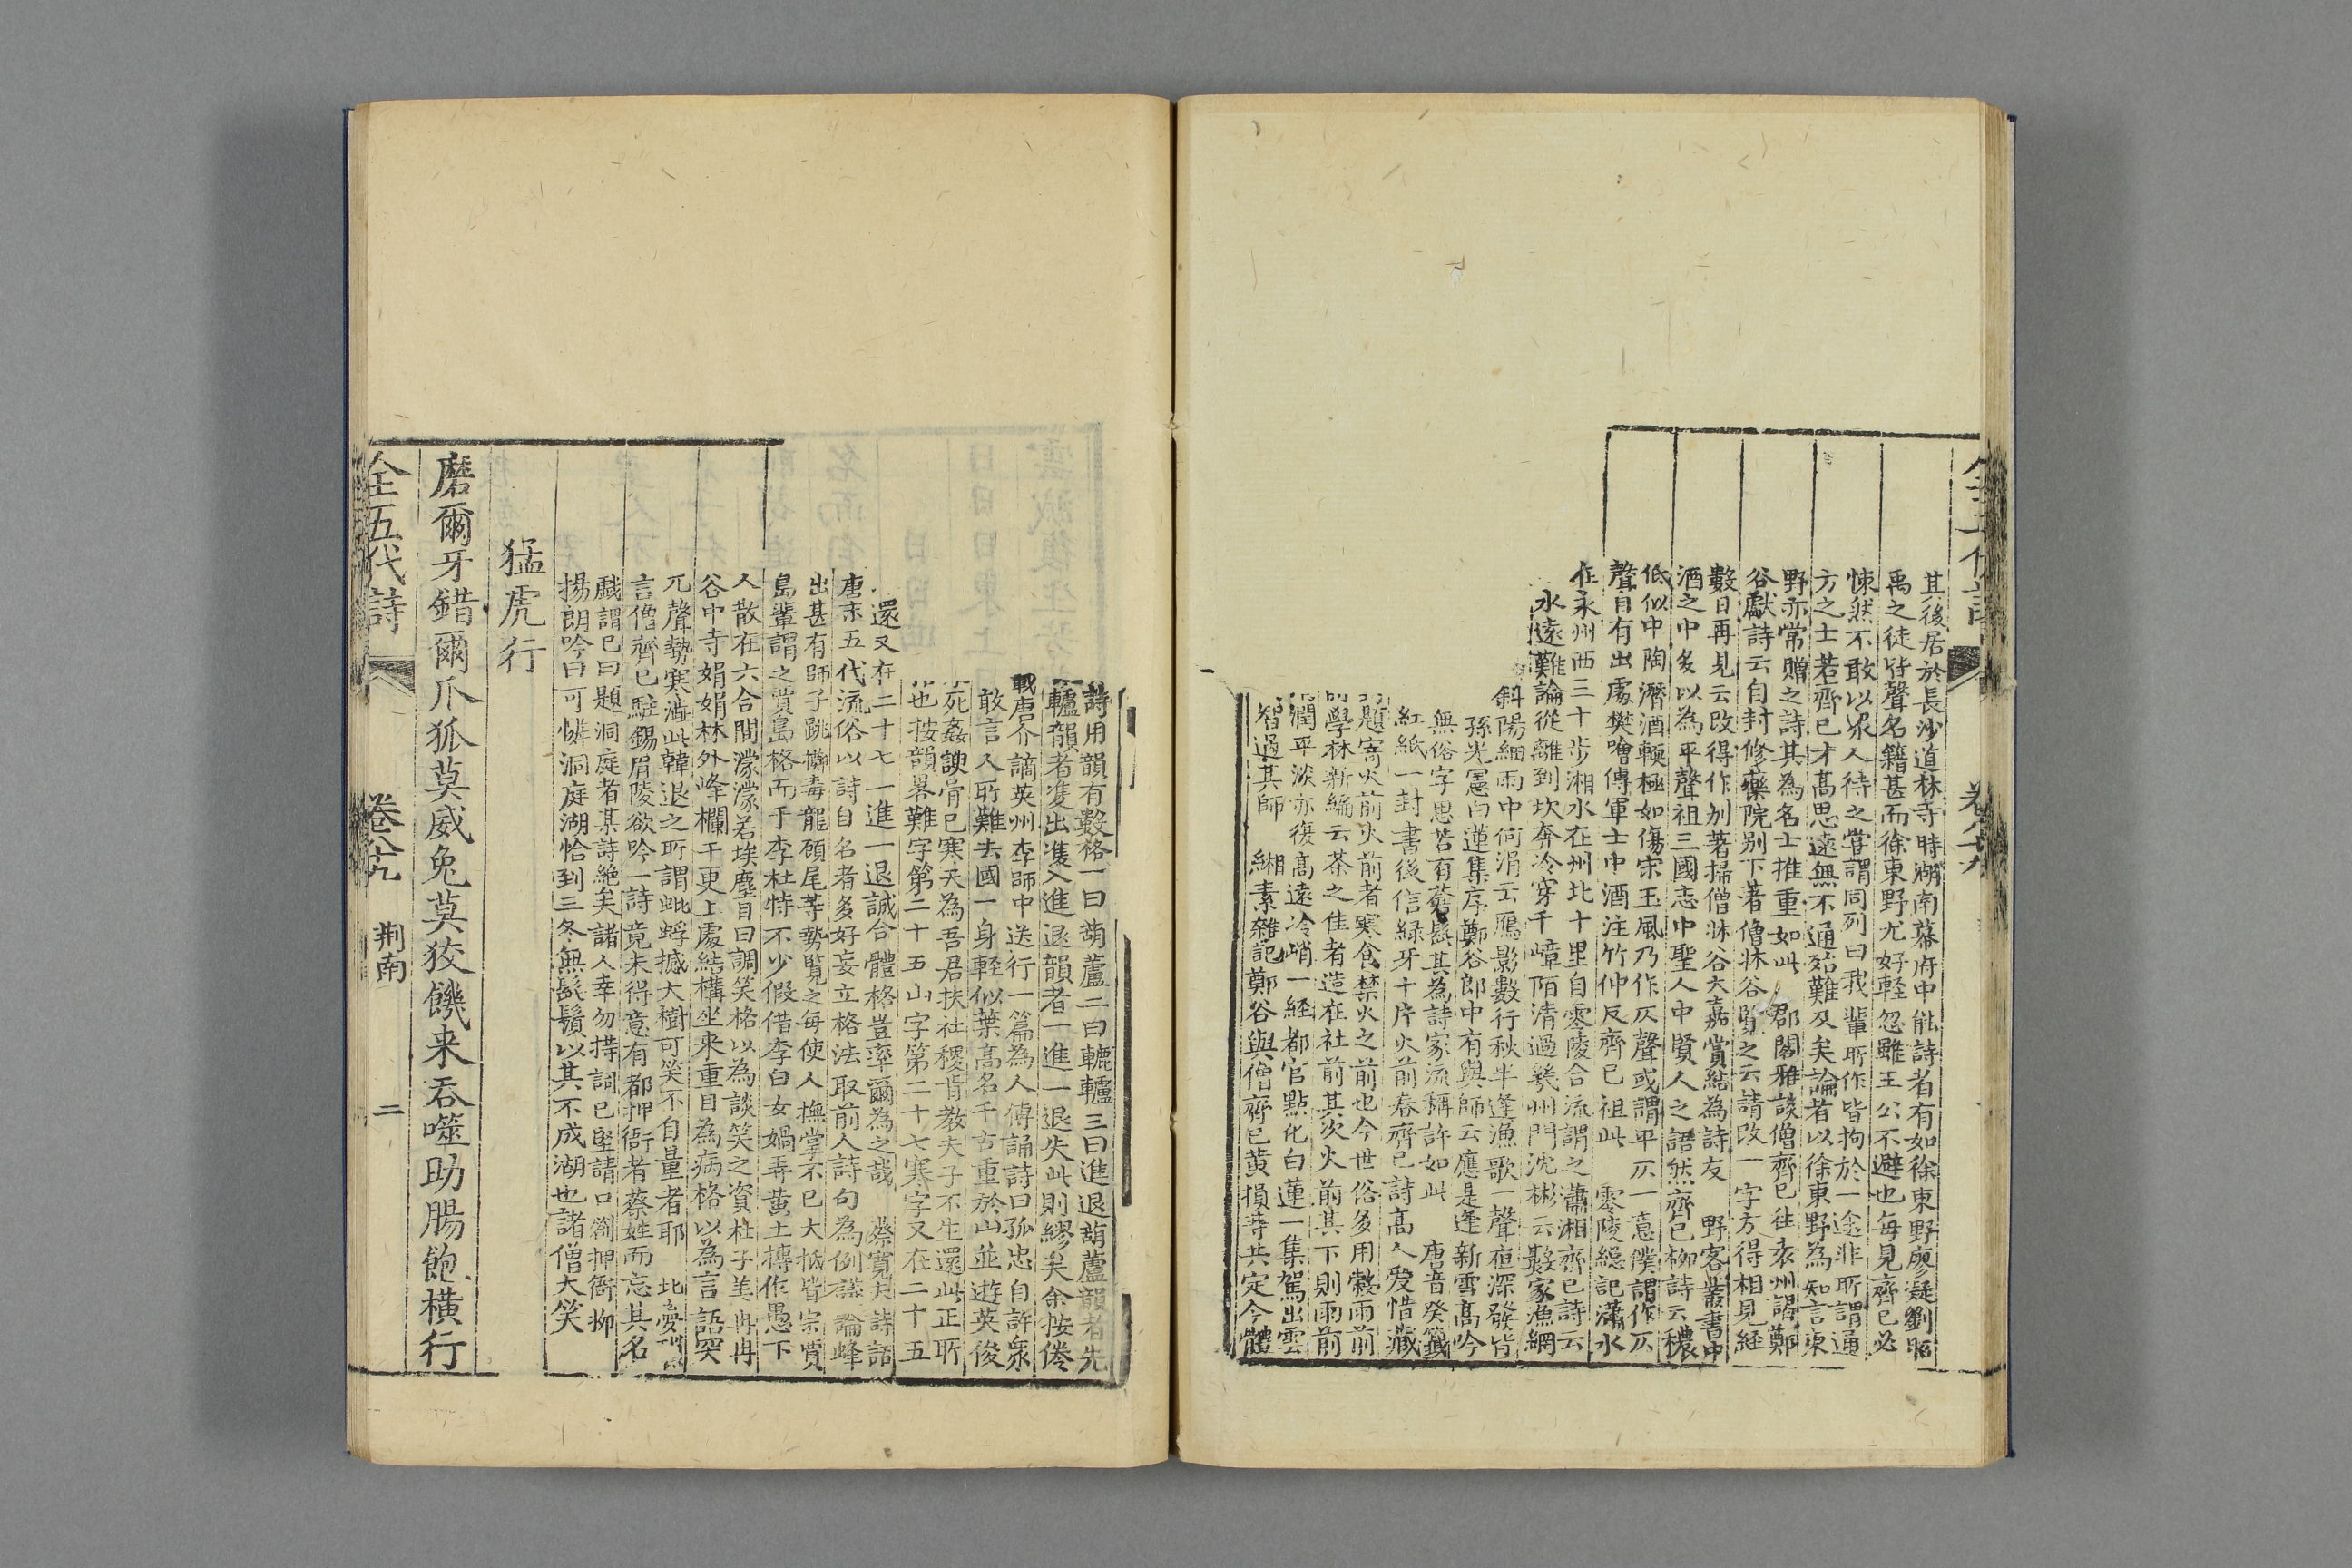 其後居於長沙道林寺時湖南幕府中能詩者有如徐東野廖凝劉昭
禹之徒皆聲名籍甚而徐東野尤好輕忽雖王公不避也每見齊已必
悚然不敢以衆人待之嘗謂同列曰我輩所作皆拘於一途非所謂通
方之士若齊已才高思遠無不通殆難及矣論者以徐東野為知言東
野亦常贈之詩其為名士推重如此 郡閣雅談僧齊已往袁州謁鄭
谷獻詩云自封修藥院别下著僧牀谷覧之云請改一字方得相見経
數日再見云改得作别著掃僧牀谷大嘉賞結為詩友 野客叢書中
酒之中多以為平聲祖三國志中聖人中賢人之語然齊已柳詩云穠
低似中陶潛酒輭極如傷宋玉風乃作仄聲或謂平仄一意僕謂作仄
聲自有出處樊噲傳軍士中酒注竹仲反齊已祖此 零陵總記瀟水
在永州西三十步湘水在州北十里自零陵合流謂之瀟湘齊已詩云
水遠難論從離到坎奔冷穿千嶂陌清過幾州門沈彬云數家漁網
斜陽細雨中何涓云鴈影數行秋半逢漁歌一聲夜深發皆
孫光憲白蓮集序鄭谷郎中有與師云應是逢新雪高吟
無俗字思苦有蒼髭其為詩家流稱許如此 唐音癸籖
紅紙一封書後信緑牙千片火前春齊已詩高人爱惜藏
題寄火前火前者寒食禁火之前也今世俗多用穀雨前
學林新編云茶之佳者造在社前其次火前其下則雨前
潤平淡亦復高遠冷峭一経都官點化白蓮一集駕出雲
智過其師 緗素雜記鄭谷與僧齊已黄損等共定今體
詩用韻有數格一曰葫蘆二曰轆轤三曰進退葫蘆韻者先
轤韻者雙出雙入進退韻者一進一退失此則繆矣余按倦
載唐介謫英州李師中送行一篇為人傳誦詩曰孤忠自許衆
敢言人所難去國一身輕似葉高名千古重於山並遊英俊
死姦諛骨已寒天為吾君扶社稷肯教夫子不生還此正所
也按韻畧難字第二十五山字第二十七寒字又在二十五
還又在二十七一進一退誠合體格豈率爾為之哉 蔡寛夫詩話
唐末五代流俗以詩自名者多好妄立格法取前人詩句為例議論蜂
出甚有師子跳擲毒龍顧尾等勢覧之每使人撫掌不已大抵皆宗賈
島輩謂之賈島格而于李杜特不少假借李白女媧弄黄土摶作愚下
人散在六合間濛濛若埃塵目曰調笑格以為談笑之資杜子美冉冉
谷中寺娟娟林外峰欄干更上處結構坐來重目為病格以為言語突
兀聲勢寒澁此韓退之所謂蚍蜉撼大樹可笑不自量者耶 北夢瑣
言僧齊已駐錫眉陵欲吟一詩竟未得意有都押衙者蔡姓而忘其名
戲謂已曰題洞庭者某詩絶矣諸人幸勿措詞已堅請口劄押衙抑
揚朗吟曰可憐洞庭湖恰到三冬無髭鬚以其不成湖也諸僧大笑
猛虎行
磨爾牙錯爾爪狐莫威兔莫狡饑来吞噬助腸飽横行
全五代詩 卷八十九 荆南 二